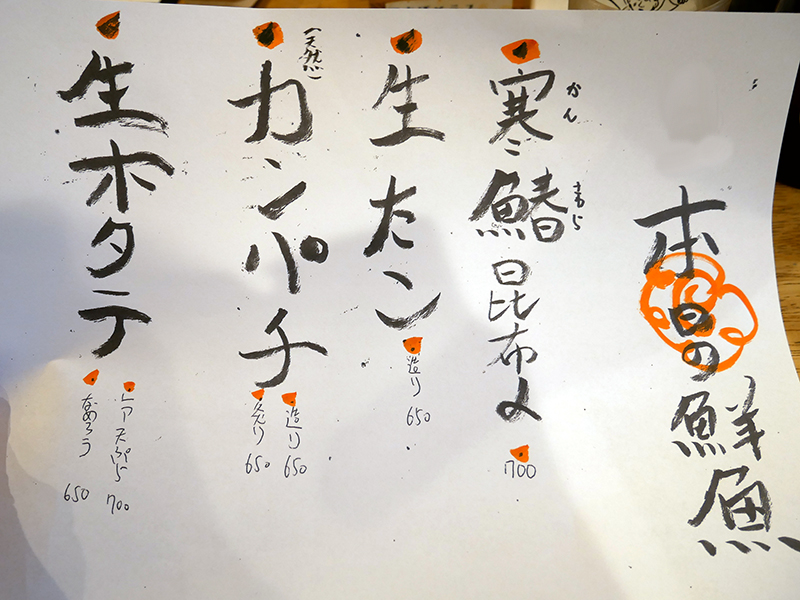 本日の鮮魚
寒鰆昆布〆
かん
さわら
700
生たこ
造り 650
(天然)
カンパチ
造り 650
炙り 650
生ホタテ
レア天ぷら 700
なめろう 650